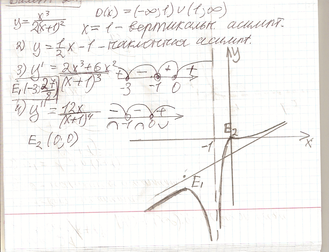 y = x³/2(x+1)² D(x) = (-∞, 1) ∪ (1, ∞)
x = 1 - вертикальн асимпт.
2) y = 1/2 x - 1 - наклонная асимпт.
3) y' = 2x³+6x²/(x+1)³ + - + +
-3 -1 0
E₁(-3;
4) y'' = 12x/(x+1)⁴ - - +
-3 0
E₂ (0,0)
y
E₂
-1
x
E₁